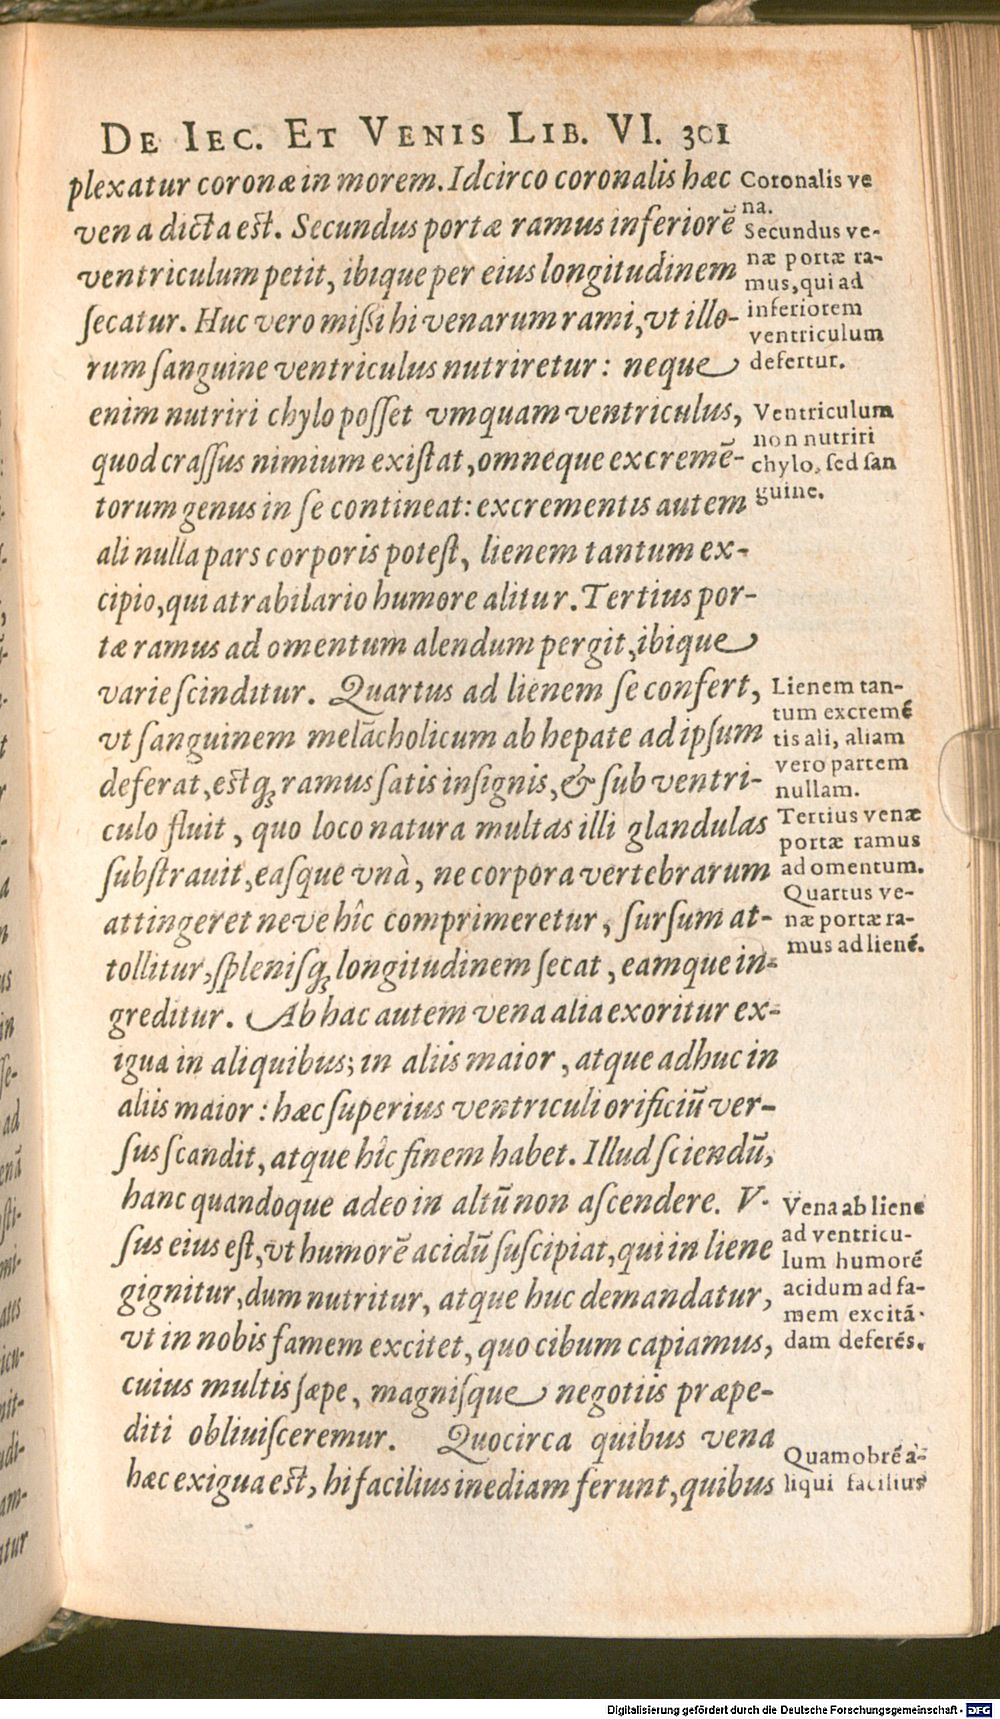 DE IEC. ET VENIS LIB. VI. 301
plexatur coronæ in morem. Idcirco coronalis hæc
vena dicta est. Secundus portæ ramus inferiorē
ventriculum petit, ibique per eius longitudinem
secatur. Huc vero missi hi venarum rami, vt illo-
rum sanguine ventriculus nutriretur: neque
enim nutriri chylo posset vmquam ventriculus,
quod crassus nimium existat, omneque excremē-
torum genus in se contineat: excrementis autem
ali nulla pars corporis potest, lienem tantum ex-
cipio, qui atrabilario humore alitur. Tertius por-
tæ ramus ad omentum alendum pergit, ibique
varie scinditur. Quartus ad lienem se confert,
vt sanguinem melācholicum ab hepate ad ipsum
deferat, estq; ramus satis insignis, & sub ventri-
culo fluit, quo loco natura multas illi glandulas
substrauit, easque vnà, ne corpora vertebrarum
attingeret neve hîc comprimeretur, sursum at-
tollitur, splenisq; longitudinem secat, eamque in-
greditur. Ab hac autem vena alia exoritur ex-
igua in aliquibus; in aliis maior, atque adhuc in
aliis maior: hæc superius ventriculi orificiū ver-
sus scandit, atque hîc finem habet. Illud sciendū,
hanc quandoque adeo in altū non ascendere. V-
sus eius est, vt humorē acidū suscipiat, qui in liene
gignitur, dum nutritur, atque huc demandatur,
vt in nobis famem excitet, quo cibum capiamus,
cuius multis sæpe, magnisque negotiis præpe-
diti obliuisceremur. Quocirca quibus vena
hæc exigua est, hi facilius inediam ferunt, quibus
Coronalis ve
na.
Secundus ve-
næ portæ ra-
mus, qui ad
inferiorem
ventriculum
defertur.
Ventriculum
non nutriri
chylo, sed san
guine.
Lienem tan-
tum excremē
tis ali, aliam
vero partem
nullam.
Tertius venæ
portæ ramus
ad omentum.
Quartus ve-
næ portæ ra-
mus ad lienē.
Vena ab liene
ad ventricu-
lum humorē
acidum ad fa-
mem excitā-
dam deferēs.
Quamobrē a-
liqui facilius
Digitalisierung gefördert durch die Deutsche Forschungsgemeinschaft - DFG